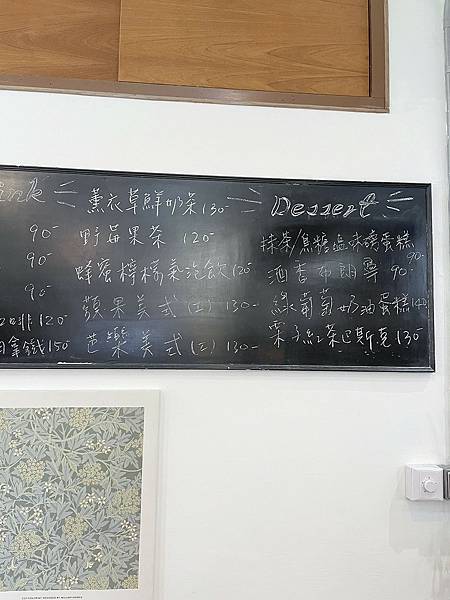 ink
Dessert
薰衣草鮮奶茶 130-
90-
野莓果茶 120-
90-
蜂蜜檸檬氣泡飲 120-
90-
蘋果美式 (I) 130-
啡 120-
芭樂美式 (I) 130-
拿鐵 150
抹茶/焦糖鹽味磅蛋糕 90-
酒香布朗尼 90-
綠葡萄奶油蛋糕 140
栗子紅茶巴斯克 130-